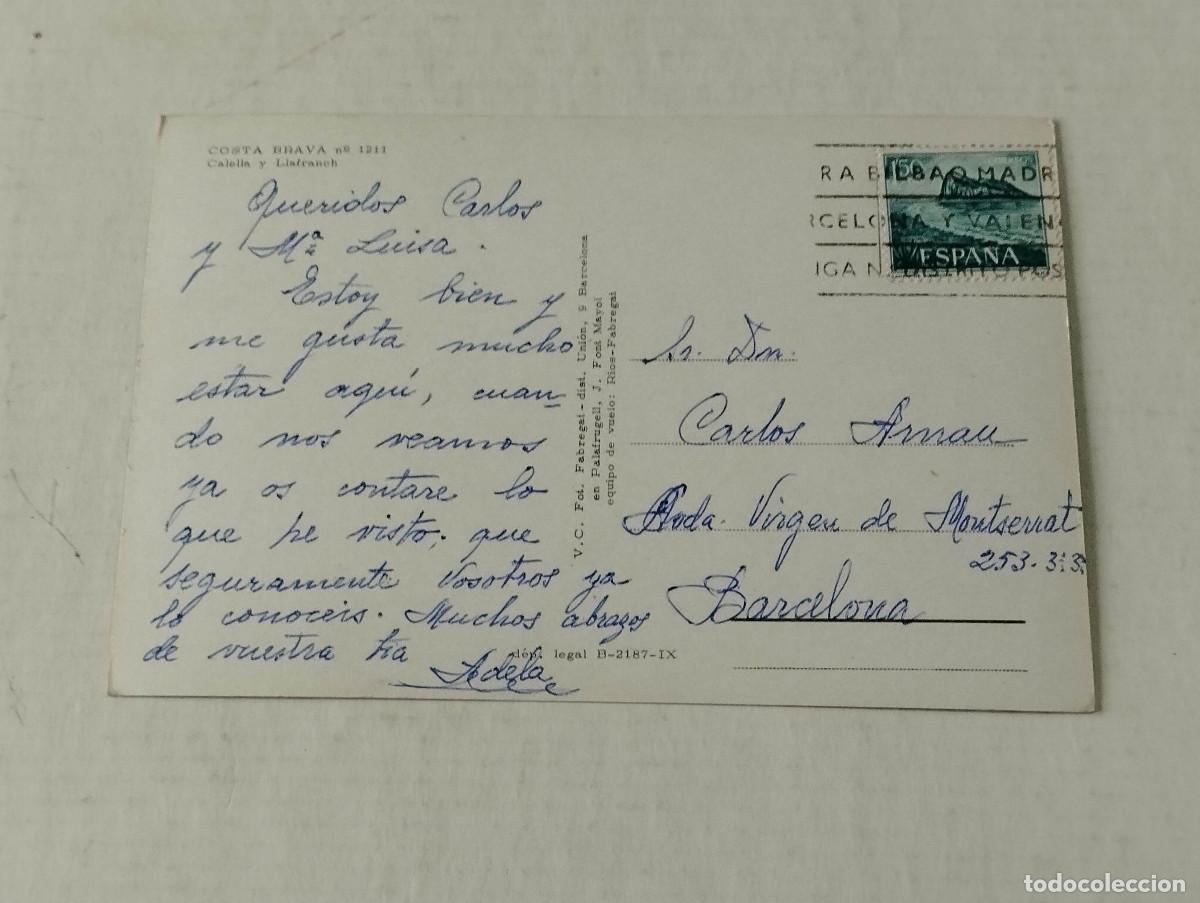 COSTA BRAVA nº 1211
Calella y Llafranch
Queridos Carlos
y Mª Luisa.
Estoy bien y
me gusta mucho
estar aquí, cuan-
do nos veamos
ya os contare lo
que he visto, que
seguramente vosotros ya
lo conoceis. Muchos abrazos
de vuestra tia
Adela
V.C. Fot. Fabregat - dist. Unión, 9 Barcelona
en Palafrugell, J. Font Mayol
equipo de vuelo: Ríos-Fabregat
dép. legal B-2187-IX
RA BILBAO MADR
RCELONA Y VALEN
IGA N DISTRITO POS
1'50
ESPAÑA
Sr. Dn.
Carlos Arnau
Avda. Virgen de Montserrat
253-3º:3ª
Barcelona
todocoleccion